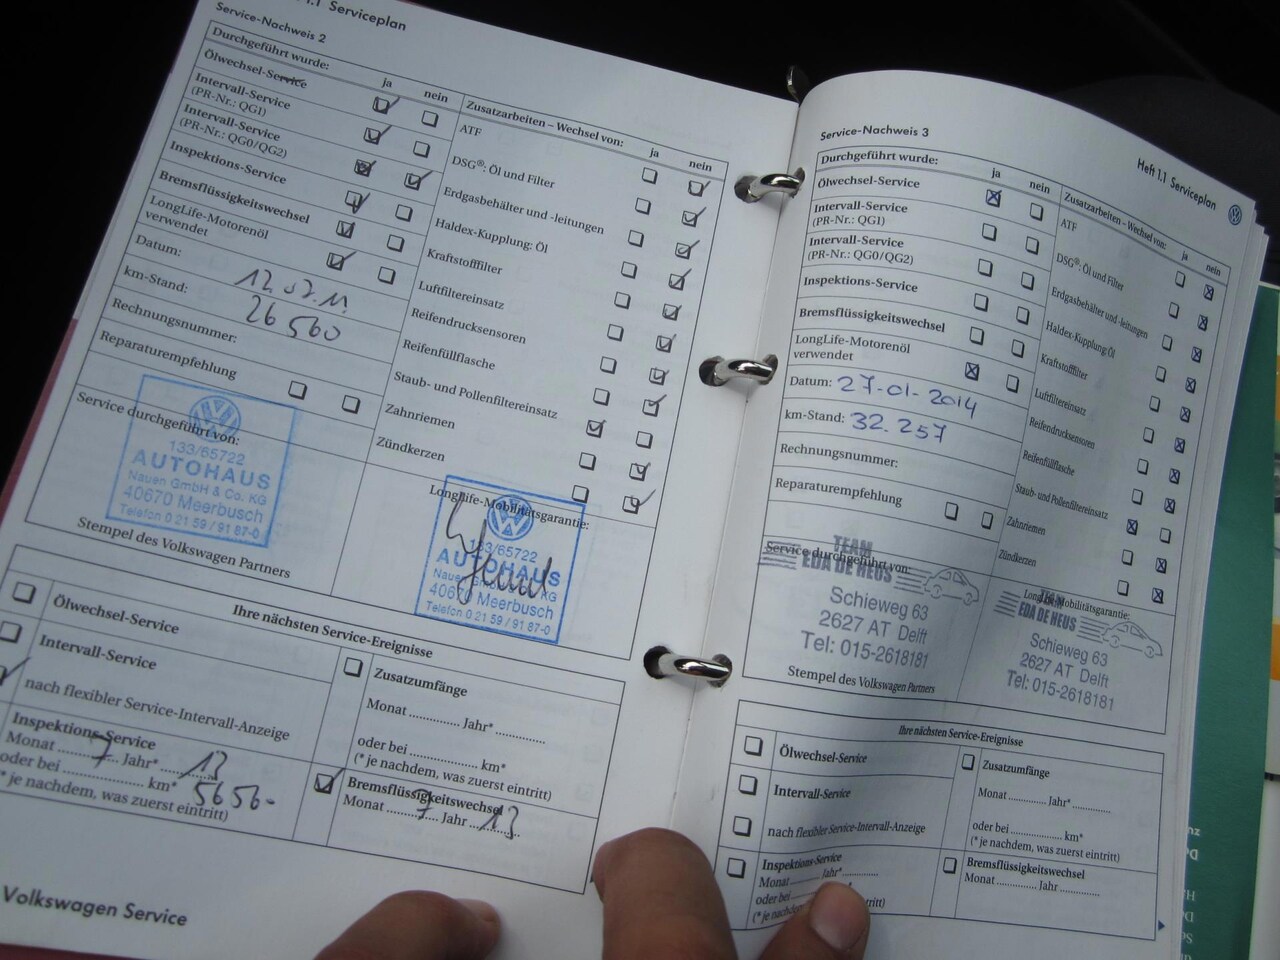 1.1 Serviceplan
Service-Nachweis 2
Durchgeführt wurde:
ja nein
Ölwechsel-Service
Intervall-Service
(PR-Nr.: QG1)
Intervall-Service
(PR-Nr.: QG0/QG2)
Inspektions-Service
Bremsflüssigkeitswechsel
LongLife-Motorenöl
verwendet
Datum: 12.07.11
km-Stand: 26 560
Rechnungsnummer:
Reparaturempfehlung
Zusatzarbeiten – Wechsel von:
ja nein
ATF
DSG®: Öl und Filter
Erdgasbehälter und -leitungen
Haldex-Kupplung: Öl
Kraftstofffilter
Luftfiltereinsatz
Reifendrucksensoren
Reifenfüllflasche
Staub- und Pollenfiltereinsatz
Zahnriemen
Zündkerzen
Service durchgeführt von:
133/65722
AUTOHAUS
Nauen GmbH & Co. KG
40670 Meerbusch
Telefon 0 21 59 / 91 87-0
Stempel des Volkswagen Partners
LongLife-Mobilitätsgarantie:
133/65722
AUTOHAUS
Nauen GmbH & Co. KG
40670 Meerbusch
Telefon 0 21 59 / 91 87-0
Ihre nächsten Service-Ereignisse
Ölwechsel-Service
Intervall-Service
nach flexibler Service-Intervall-Anzeige
Inspektions-Service
Monat 7 Jahr* 13
oder bei km* 5656-
(* je nachdem, was zuerst eintritt)
Zusatzumfänge
Monat Jahr*
oder bei km*
(* je nachdem, was zuerst eintritt)
Bremsflüssigkeitswechsel
Monat 7 Jahr 13
Volkswagen Service
Heft 1.1 Serviceplan
Service-Nachweis 3
Durchgeführt wurde:
ja nein
Ölwechsel-Service
Intervall-Service
(PR-Nr.: QG1)
Intervall-Service
(PR-Nr.: QG0/QG2)
Inspektions-Service
Bremsflüssigkeitswechsel
LongLife-Motorenöl
verwendet
Datum: 27-01-2014
km-Stand: 32.257
Rechnungsnummer:
Reparaturempfehlung
Zusatzarbeiten – Wechsel von:
ja nein
ATF
DSG®: Öl und Filter
Erdgasbehälter und -leitungen
Haldex-Kupplung: Öl
Kraftstofffilter
Luftfiltereinsatz
Reifendrucksensoren
Reifenfüllflasche
Staub- und Pollenfiltereinsatz
Zahnriemen
Zündkerzen
Service durchgeführt von:
TEAM
EDA DE HEUS
Schieweg 63
2627 AT Delft
Tel: 015-2618181
Stempel des Volkswagen Partners
LongLife-Mobilitätsgarantie:
TEAM
EDA DE HEUS
Schieweg 63
2627 AT Delft
Tel: 015-2618181
Ihre nächsten Service-Ereignisse
Ölwechsel-Service
Intervall-Service
nach flexibler Service-Intervall-Anzeige
Inspektions-Service
Monat Jahr*
oder bei
(* je nachdem
Zusatzumfänge
Monat Jahr*
oder bei km*
(* je nachdem, was zuerst eintritt)
Bremsflüssigkeitswechsel
Monat Jahr